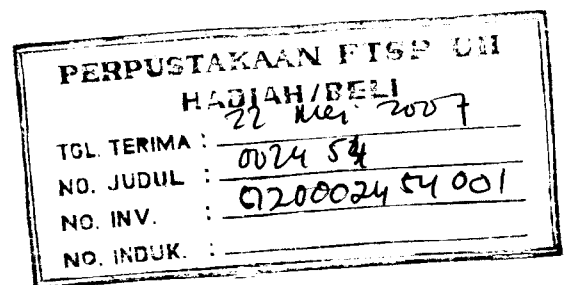 PERPUSTAKAAN FTSP UII
HADIAH/BELI
TGL. TERIMA : 22 Mei 2007
NO. JUDUL : 002454
NO. INV. : 5120002454001
NO. INDUK. :